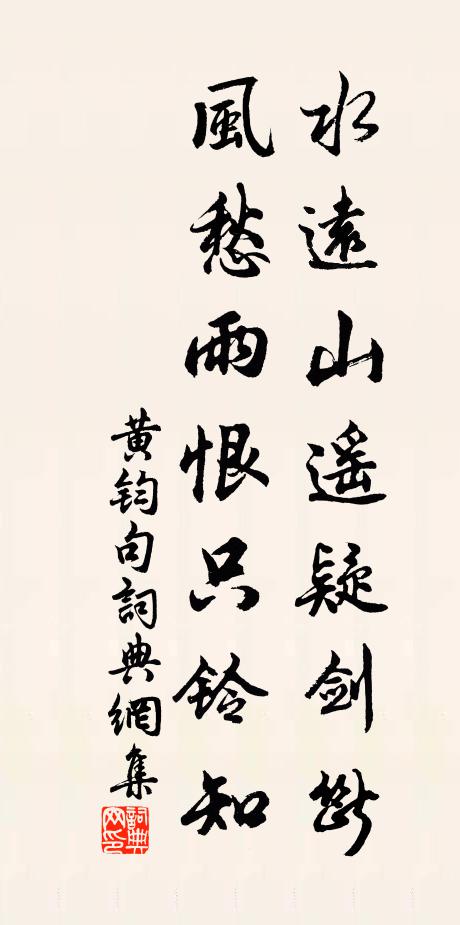 水遠山遥疑剑斷
風愁雨恨只鈴知
黄鈞句詞典網集
詞典
网印